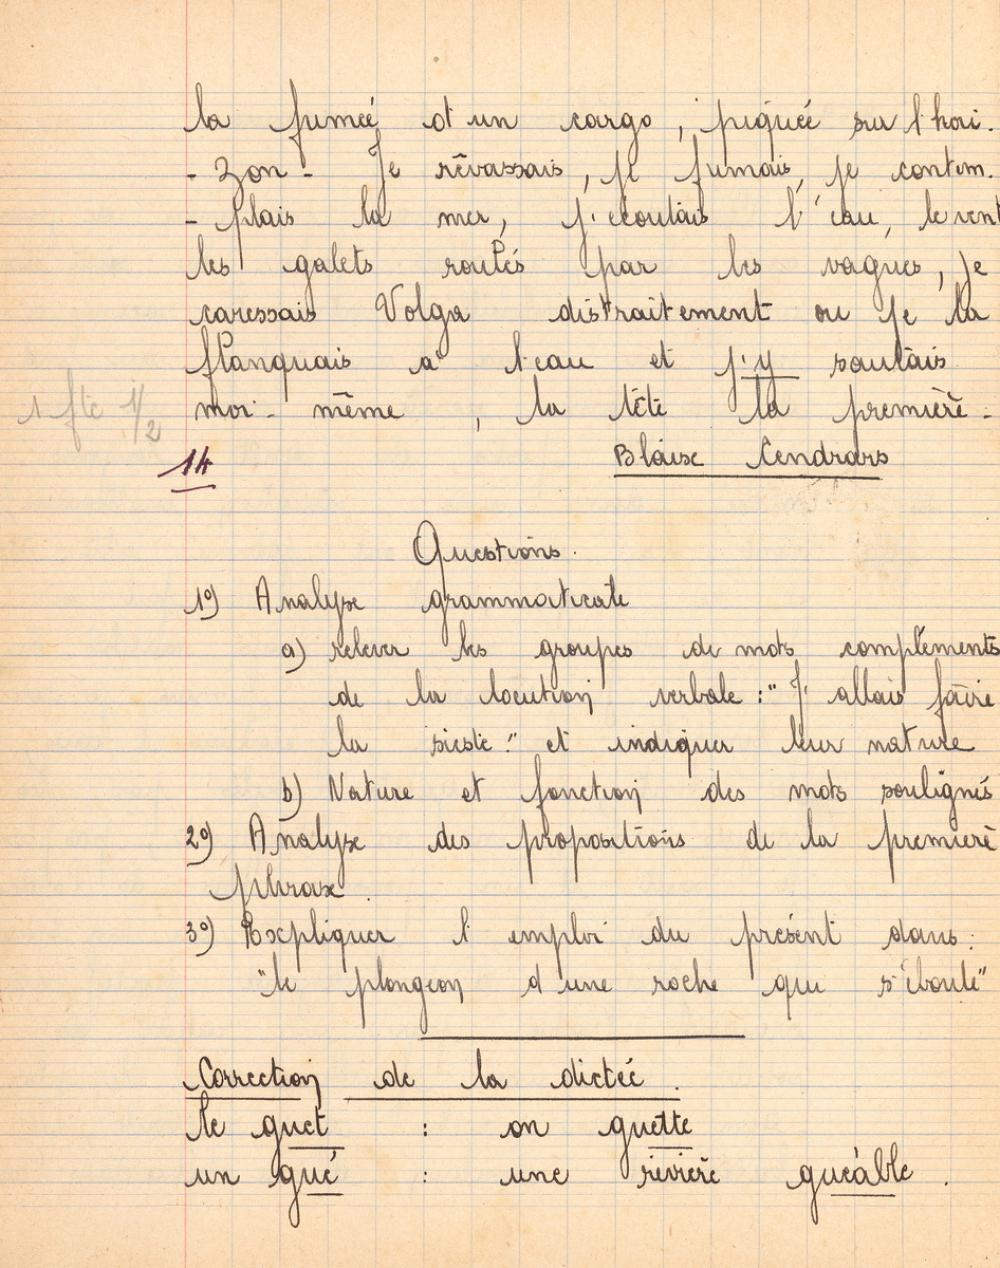 la fumée d'un cargo, piquée sur l'hori-
-zon- Je rêvassais, je fumais, je contem-
-plais la mer, j'écoutais l'eau, le vent
les galets roulés par les vagues, je
caressais Volga distraitement ou je la
flanquais à l'eau et j'y sautais
moi-même, la tête la première.
1 fte 1/2
14
Blaise Cendrars
Questions.
1°) Analyse grammaticale
a) relever les groupes de mots compléments
de la locution verbale : "J'allais faire
la sieste." et indiquer leur nature
b) Nature et fonction des mots soulignés
2°) Analyse des propositions de la première
phrase.
3°) Expliquer l'emploi du présent dans :
"le plongeon d'une roche qui s'éboule"
Correction de la dictée.
le guet : on guette
un gué : une rivière guéable.